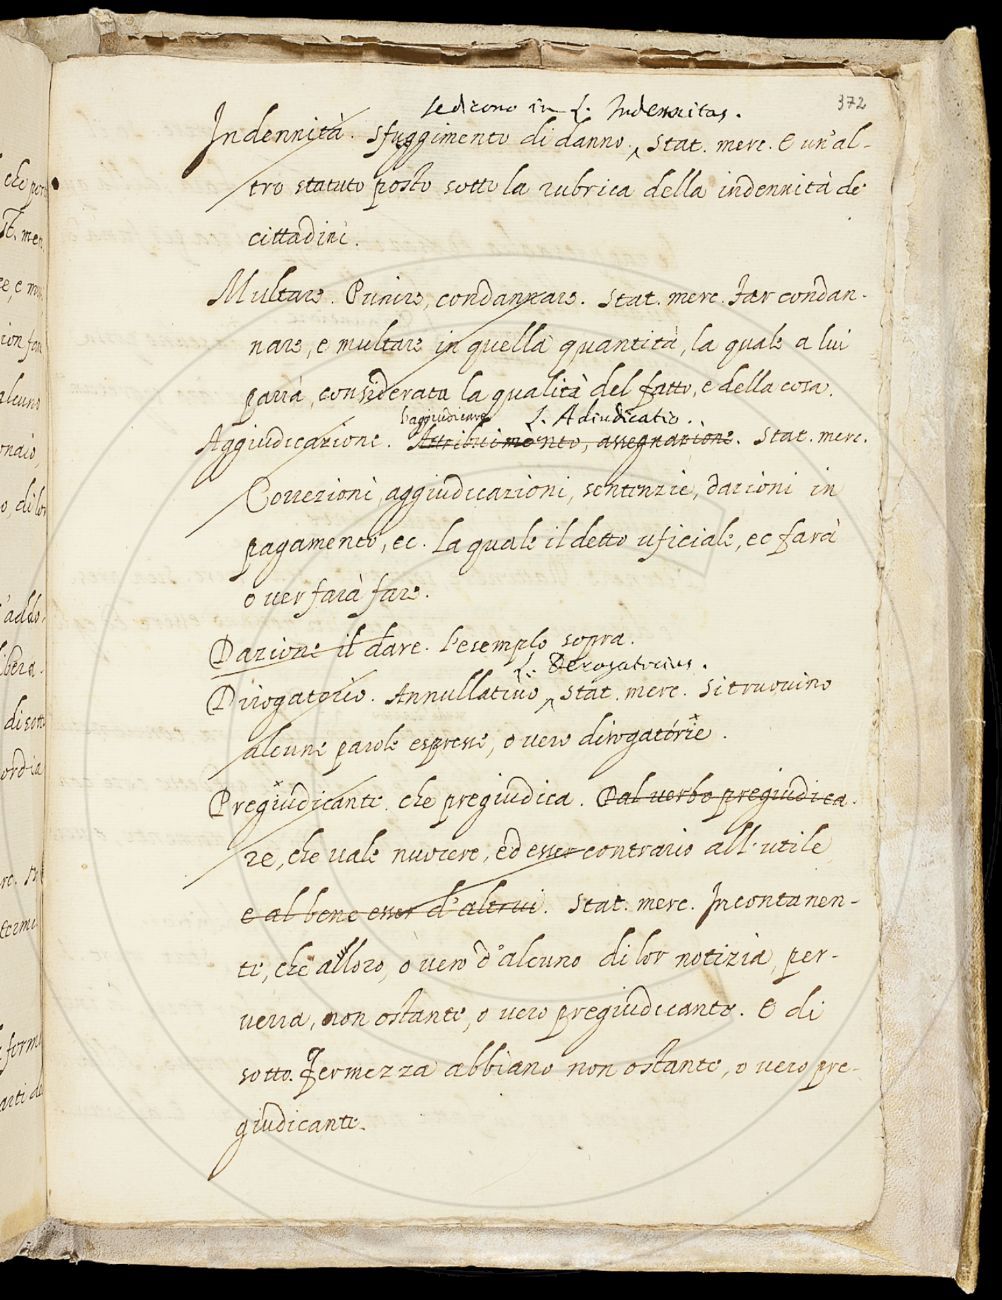 372
se dicono in L. Indennitas.
Indennità. Sfuggimento di danno ‸ Stat. merc. E un'al-
tro statuto posto sotto la rubrica della indennità de'
cittadini.
Multare. Punire, condannare. Stat. merc. Far condan-
nare, e multare in quella quantità, la quale a lui
parrà, considerata la qualità del fatto, e della cosa.
l'aggiudicare L. Adiudicatio.
Aggiudicazione. Attribuimento, assegnazione. Stat. merc.
Correzioni, aggiudicazioni, sentenzie, dazioni in
pagamento, ec. la quale il detto uficiale, ec farà
o ver farà fare.
Dazione il dare. l'esemplo sopra.
L. Derogatorius.
Dirogatorio. Annullativo ‸ Stat. merc. Si truovino
alcune parole espresse, o vero dirogatórie.
Pregiudicante. che pregiudica. Dal verbo pregiudica-
re, che vale nuocere, ed esser contrario all'utile
e al bene esser d'altrui. Stat. merc. Incontanen-
te, che alloro, o vero d'alcuno di lor notizia, per-
verrà, non ostante, o vero pregiudicante. E di
sotto. Fermezza abbiano non ostante, o vero pre-
giudicante.
che per
St. mer
ion fan
alcuno
onaio,
o, di lor
libera.
di sotto
ordia
termi